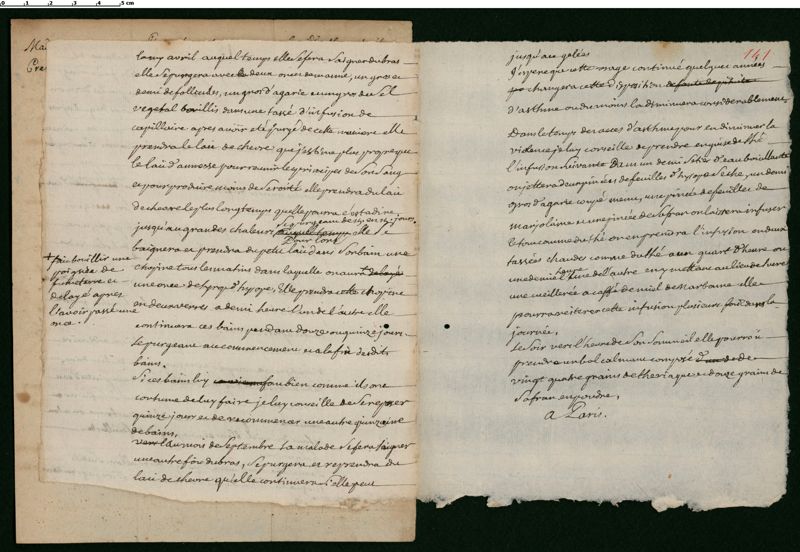 0 1 2 3 4 5 cm
Ma
Cre
lamy avril auquel temps elle se fera Saigner du bras
elle se purgera avec deux onces de manne, un gros et
demi de follicules, un gros d'agaric et un gros de sel
vegetal bouillis dans une tasse d'infusion de
capillaire apres avoir eté purgé de cette maniere elle
prendra le lait de chevre que j'estime plus propre que
le lait d'annesse pour remunir les principes de son sang
et pour produire moins de serosité elle prendra du lait
de chevre le plus longtemps quelle pourra c'est a dire
jusqu'au grandes chaleurs, auquel temps elle se
se purgeant de 15 en 15 jours
Pour lors
baignera et prendra du petit lait dans son bain une
chopine tous les matins dans laquelle on aura
une once de syrop d'hysope, Elle prendra cette chopine
en deux verres a demi heure l'un de l'autre elle
continuera ces bains pendant douze ou quinze jours
se purgeant au commencement et a la fin desdits
bains.
Si ces bains luy font du bien comme ils ont
coutume de luy faire je luy conseille de se reposer
quinze jours et de recommencer une autre quinzaine
de bains,
vers la my mois de Septembre La malade se fera saigner
une autre fois du bras, se purgera et reprendra du
lait de chevre qu'elle continuera si elle peut
+ fait bouillir une
poignée de
fumeterre et
delayé apres
l'avoir passé une
141
jusqu'aux gelées
J'espere que cette usage continué quelques années
changera cette disposition
d'asthme ou du moins la diminuera considerablement
Dans le temps des acces d'asthme pour en diminuer la
violence je luy conseille de prendre en guise de thé
l'infusion suivante Dans un demi setier d'eau bouillante
on jettera deux pincées de feuilles d'hysope seche, un demi
gros d'agaric coupé menu, une pincée de feuilles de
marjolaine et une pincée de safran on laissera infuser
le tout comme du thé on en prendra l'infusion en deux
tasses chaudes comme du thé a un quart d'heure ou
une demie l'une de l'autre en y mettant au lieu de sucre
une cueillerée a caffé de miel de Narbonne elle
pourra reiterer cette infusion plusieurs fois dans la
journée,
Le Soir vers l'heure de son sommeil elle pourra
prendre un bol calmant composé de
vingt quatre grains de theriaque et douze grains de
Safran en poudre,
A Paris.